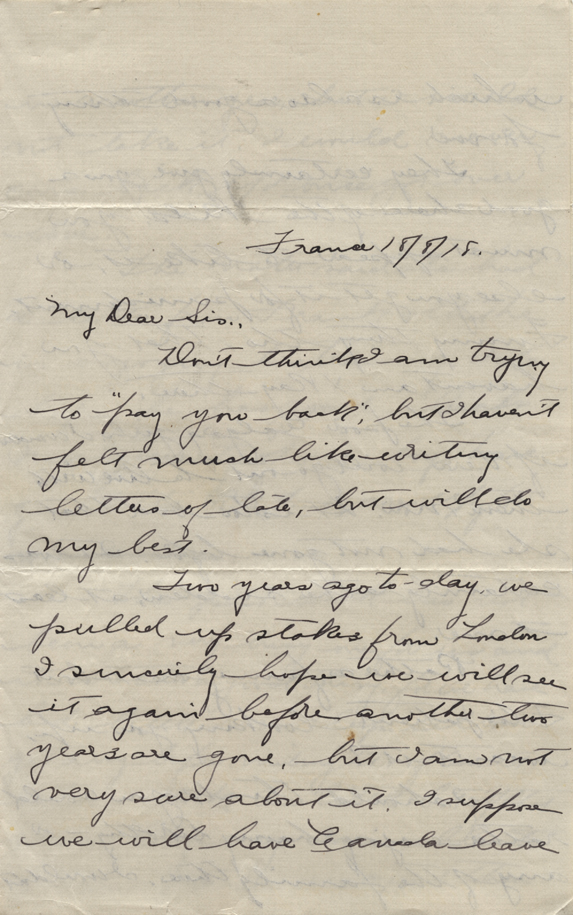 France 18/8/18.
My Dear Sis.,
Don't think I am trying
to "pay you back", but I haven't
felt much like writing
letters of late, but will do
my best.
Two years ago to-day, we
pulled up stakes from London
I sincerely hope we will see
it again before another two
years are gone, but I am not
very sure about it. I suppose
we will have Canada leave